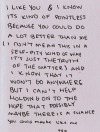 I LIKE YOU & I KNOW
ITS KIND OF POINTLESS
BECAUSE YOU COULD DO
A LOT BETTER THAN ME
I DON'T MEAN THAT IN A
SELF-PITY KIND OF WAY
ITS JUST THE TRUTH
OF THE MATTER & AND
I KNOW THAT IT
WON'T GO ANYWHERE
BUT I CAN'T HELP
HOLDING ON TO THE
HOPE THAT
MAYBE THERE IS A CHANCE
YOU COULD MAYBE LIKE ME
TOO